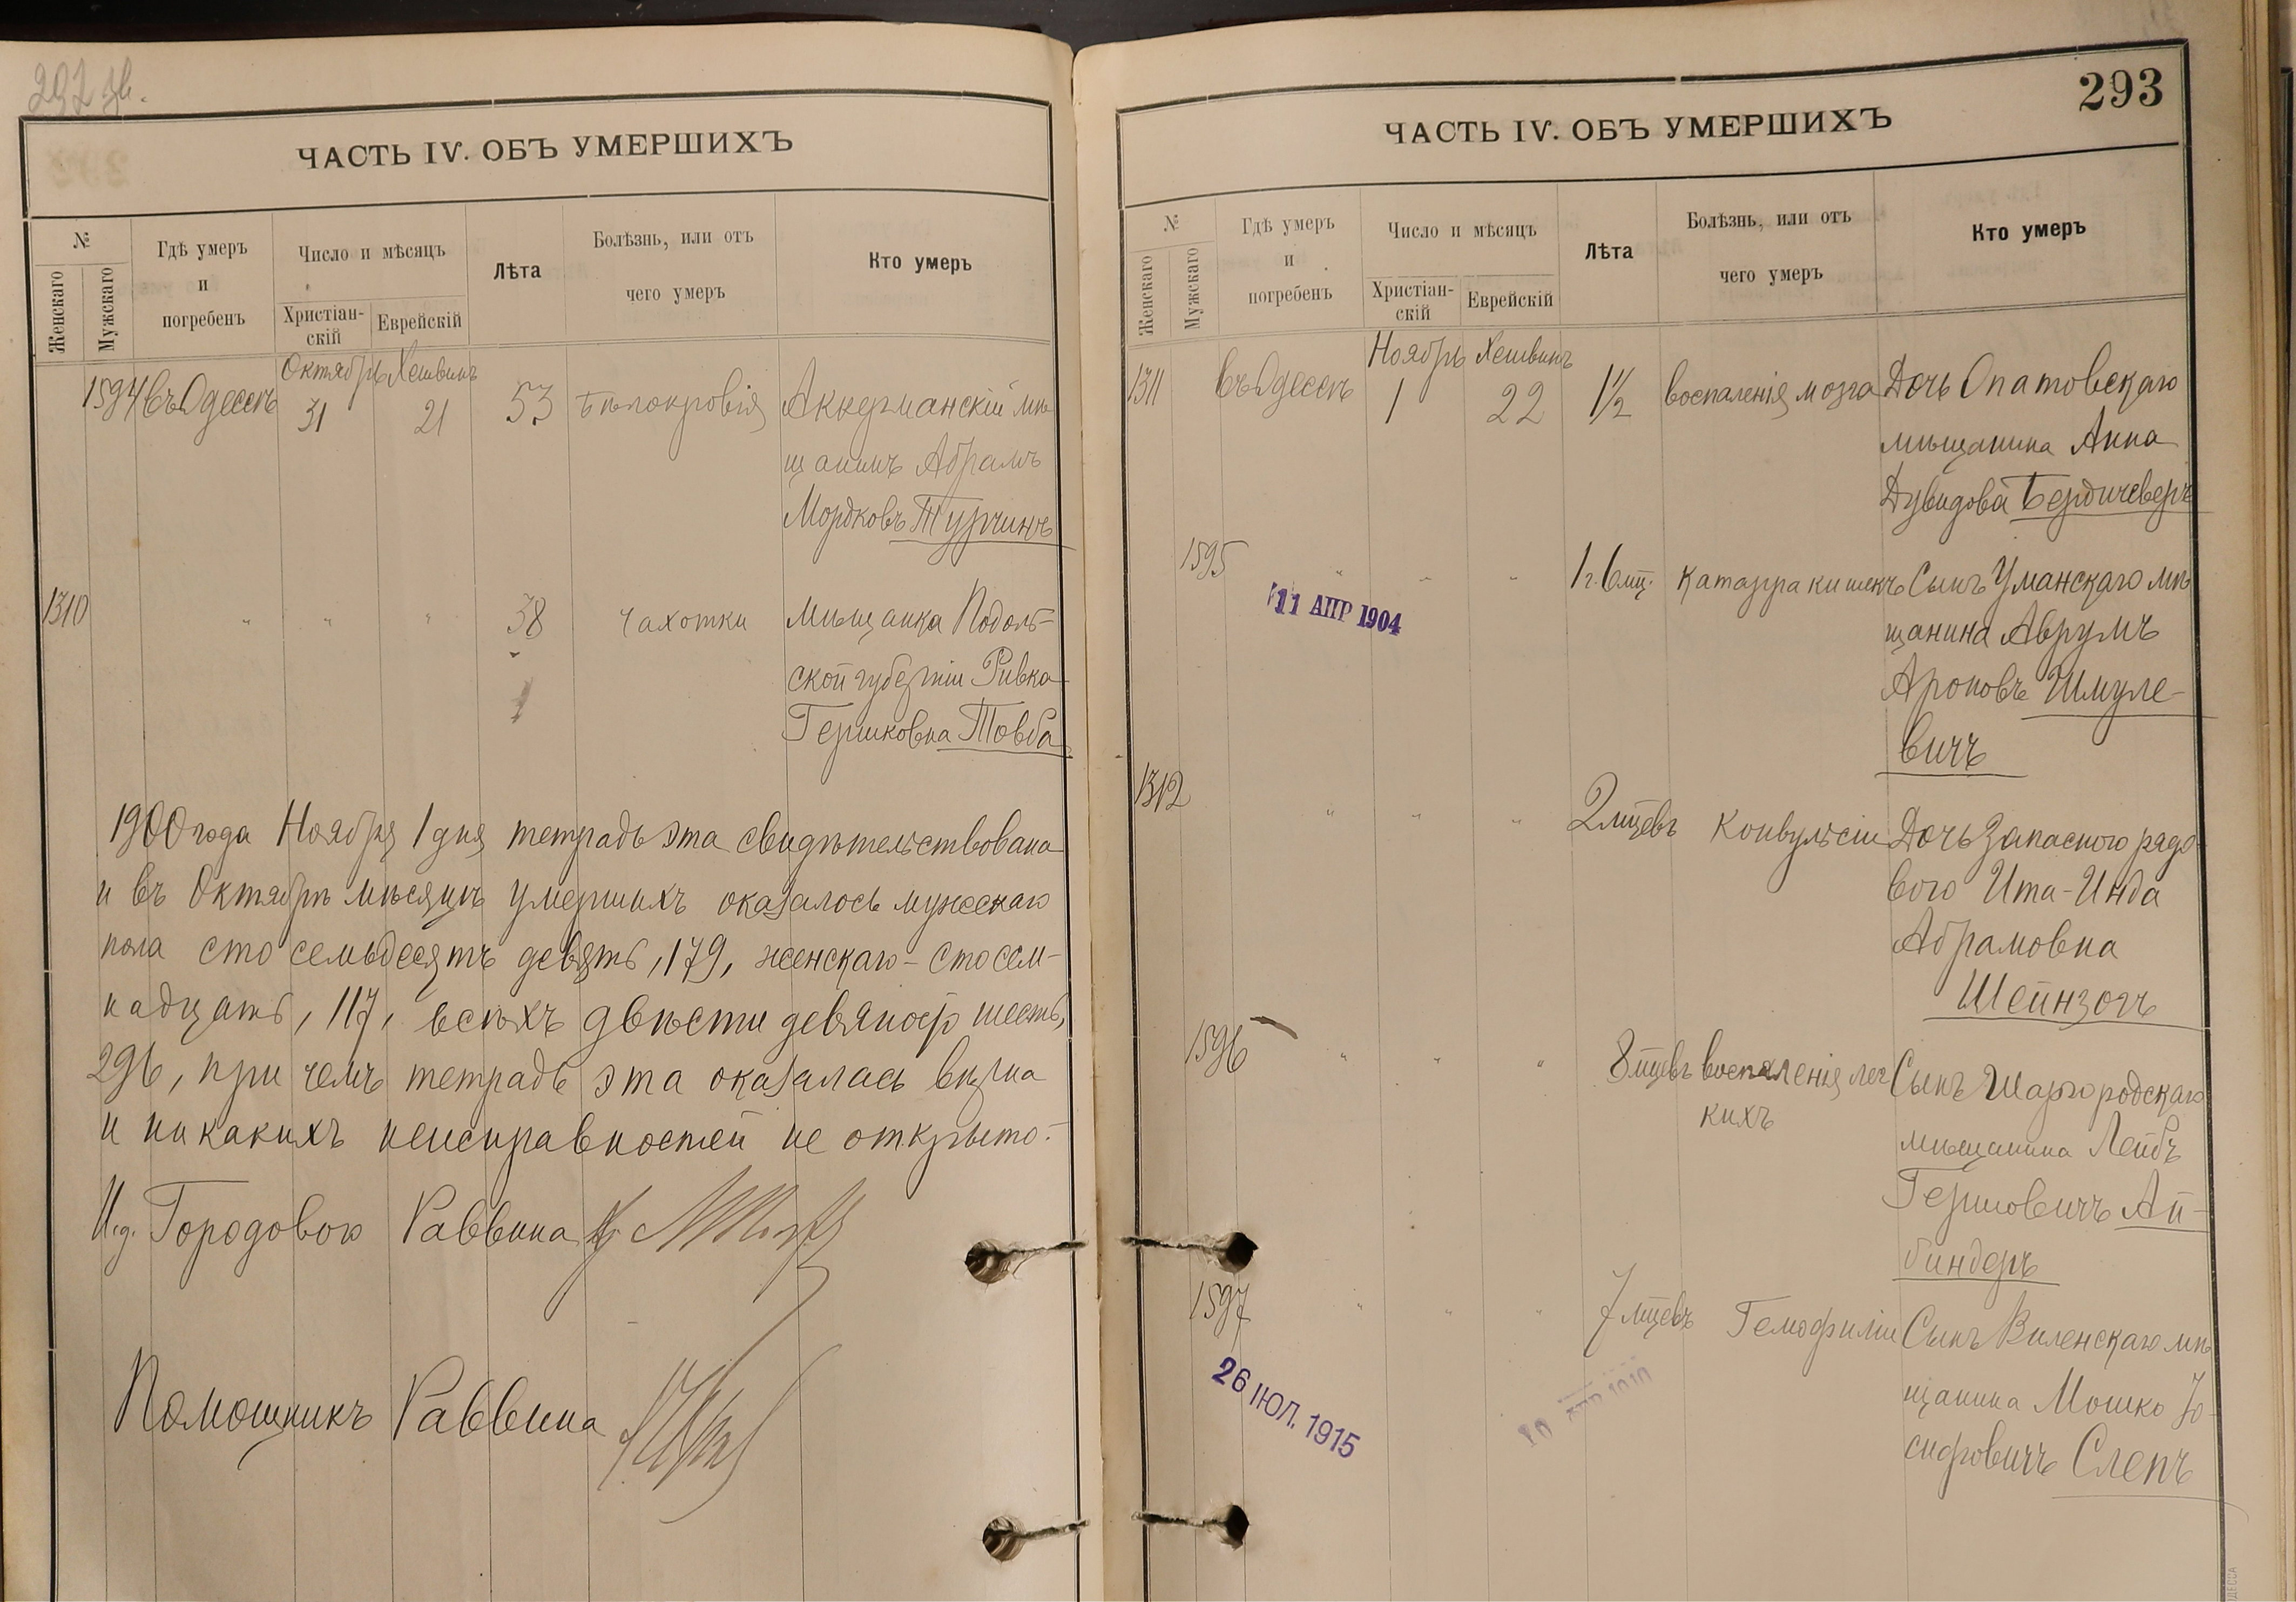 292 зв.
ЧАСТЬ IV. ОБЪ УМЕРШИХЪ
№
Женскаго
Мужскаго
Гдѣ умеръ
и
погребенъ
Число и мѣсяцъ
Христіан-
скій
Еврейскій
Лѣта
Болѣзнь, или отъ
чего умеръ
Кто умеръ
Октябрь Хешвинъ
1594 въ Одессѣ 31 21 53 Бѣлокровія Аккерманскій мѣ
щанинъ Абрамъ
Мордковъ Турчинъ
1310 " " " 38 чахотки мѣщанка Подоль-
ской губерніи Ривка
Гершковна Товба
1900 года Ноября 1 дня тетрадь эта свидѣтельствована
и въ Октябрѣ мѣсяцѣ умершихъ оказалось мужескаго
пола сто семьдесятъ девять, 179, женскаго - сто сем-
надцать, 117, всѣхъ двѣсти девяносто шесть,
296, при чемъ тетрадь эта оказалась вѣрна
и никакихъ неисправностей не открыто.
И.д. Городового Раввина
Помощникъ Раввина
293
ЧАСТЬ IV. ОБЪ УМЕРШИХЪ
№
Женскаго
Мужскаго
Гдѣ умеръ
и
погребенъ
Число и мѣсяцъ
Христіан-
скій
Еврейскій
Лѣта
Болѣзнь, или отъ
чего умеръ
Кто умеръ
Ноябрь Хешвинъ
1311 въ Одессѣ 1 22 1½ воспаленія мозга Дочь Опатовскаго
мѣщанина Анна
Дувидова Бердичеверъ
1595 " " " 1 г. 6 мц. катарра кишекъ Сынъ Уманскаго мѣ
11 АПР 1904
щанина Аврумъ
Ароновъ Шмуле-
вичъ
1312 " " " 2 мцевъ Конвульсіи Дочь Запасного рядо
вого Ита-Инда
Абрамовна
Шейнзогъ
1596 " " " 8 мцевъ воспаленія лег Сынъ Шаргородскаго
кихъ
мѣщанина Лейбъ
Гершовичъ Ай-
биндеръ
1597 " " " 7 мцевъ Гемофиліи Сынъ Виленскаго мѣ
щанина Мошко Іо-
сифовичъ Слепъ
26 ІЮЛ. 1915